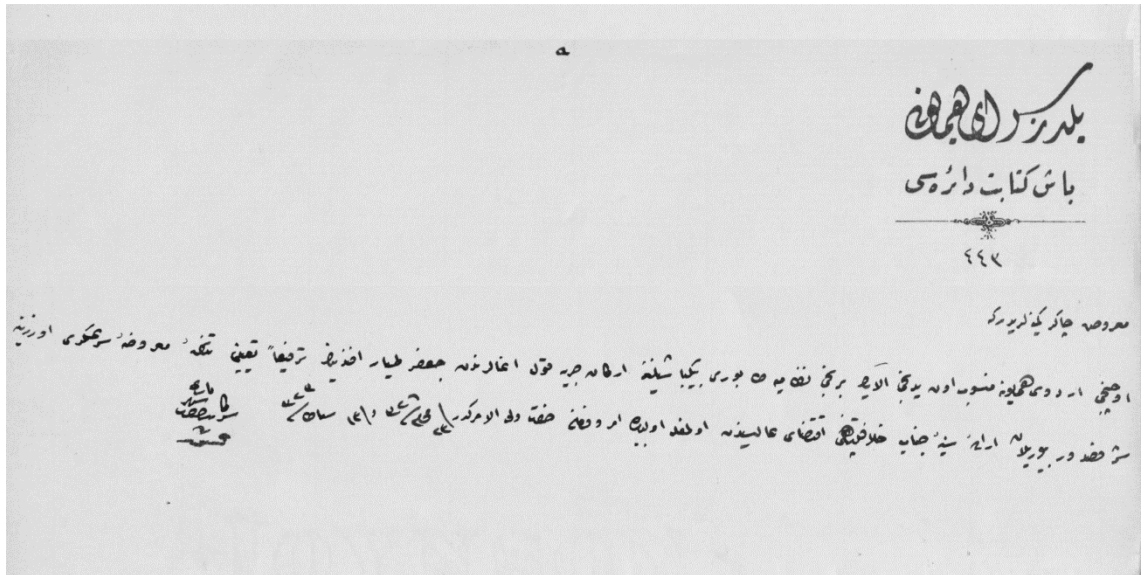 a
يلدز سراى همايونى
باش كتابت دائره سى
٤٤٣
معروض چاكر كمينه لريدر كه
اوچنجى اردوى همايونه منسوب اون يدنجى آلايك برنجى بيكباشيلغنه اركان حربيه قول اغالرندن جعفر طيار افندينك ترفيعاً تعيينى تذكرۀ معروضۀ سرعسكرى اوزرينه
شرفصدور بيوريلان ارادۀ سنيۀ جناب خلافتپناهى اقتضاى عاليسندن اولمغله اولبابده امر و فرمان حضرت ولى الامركدر
سركاتب حضرت شهريارى
تحسين